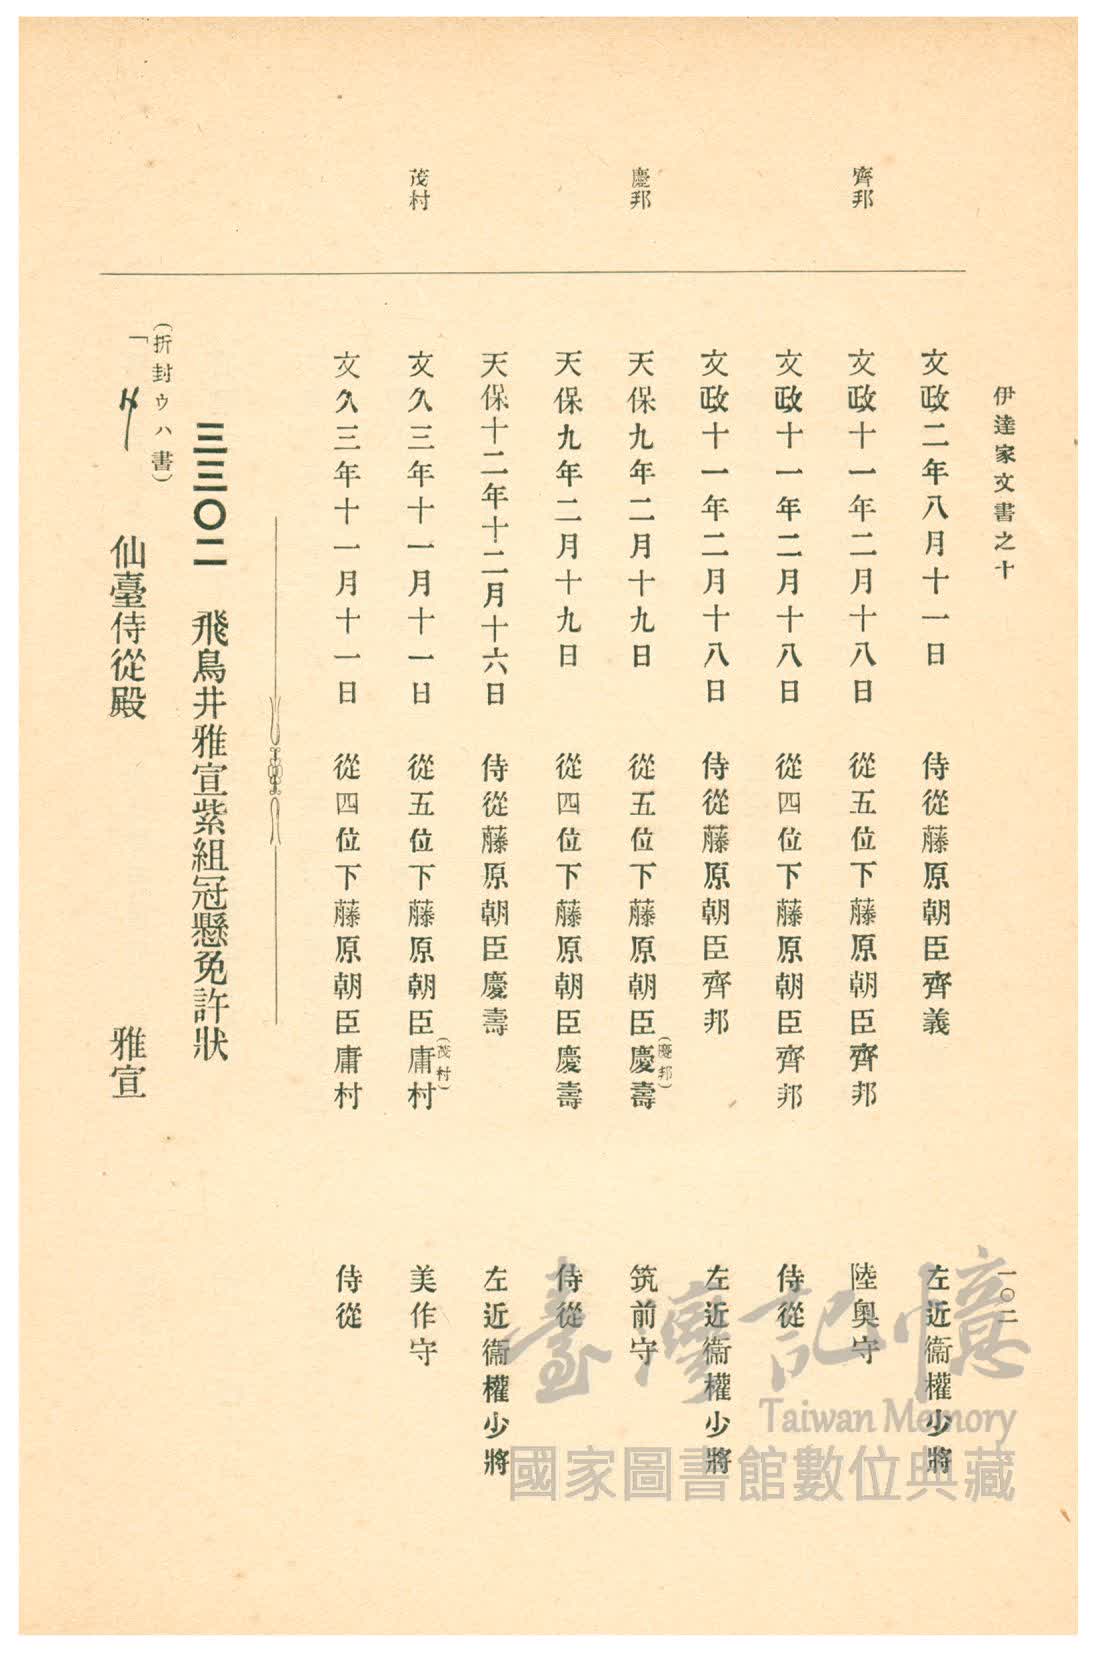 伊達家文書之十
一〇二
齊邦
慶邦
茂村
文政二年八月十一日 侍從藤原朝臣齊義 左近衞權少將
文政十一年二月十八日 從五位下藤原朝臣齊邦 陸奧守
文政十一年二月十八日 從四位下藤原朝臣齊邦 侍從
文政十一年二月十八日 侍從藤原朝臣齊邦 左近衞權少將
天保九年二月十九日 從五位下藤原朝臣慶壽(慶邦) 筑前守
天保九年二月十九日 從四位下藤原朝臣慶壽 侍從
天保十二年十二月十六日 侍從藤原朝臣慶壽 左近衞權少將
文久三年十一月十一日 從五位下藤原朝臣庸村(茂村) 美作守
文久三年十一月十一日 從四位下藤原朝臣庸村 侍從
三三〇二 飛鳥井雅宣紫組冠懸免許狀
(折封ウハ書)
「 仙臺侍從殿 雅宣
臺灣記憶
Taiwan Memory
國家圖書館數位典藏